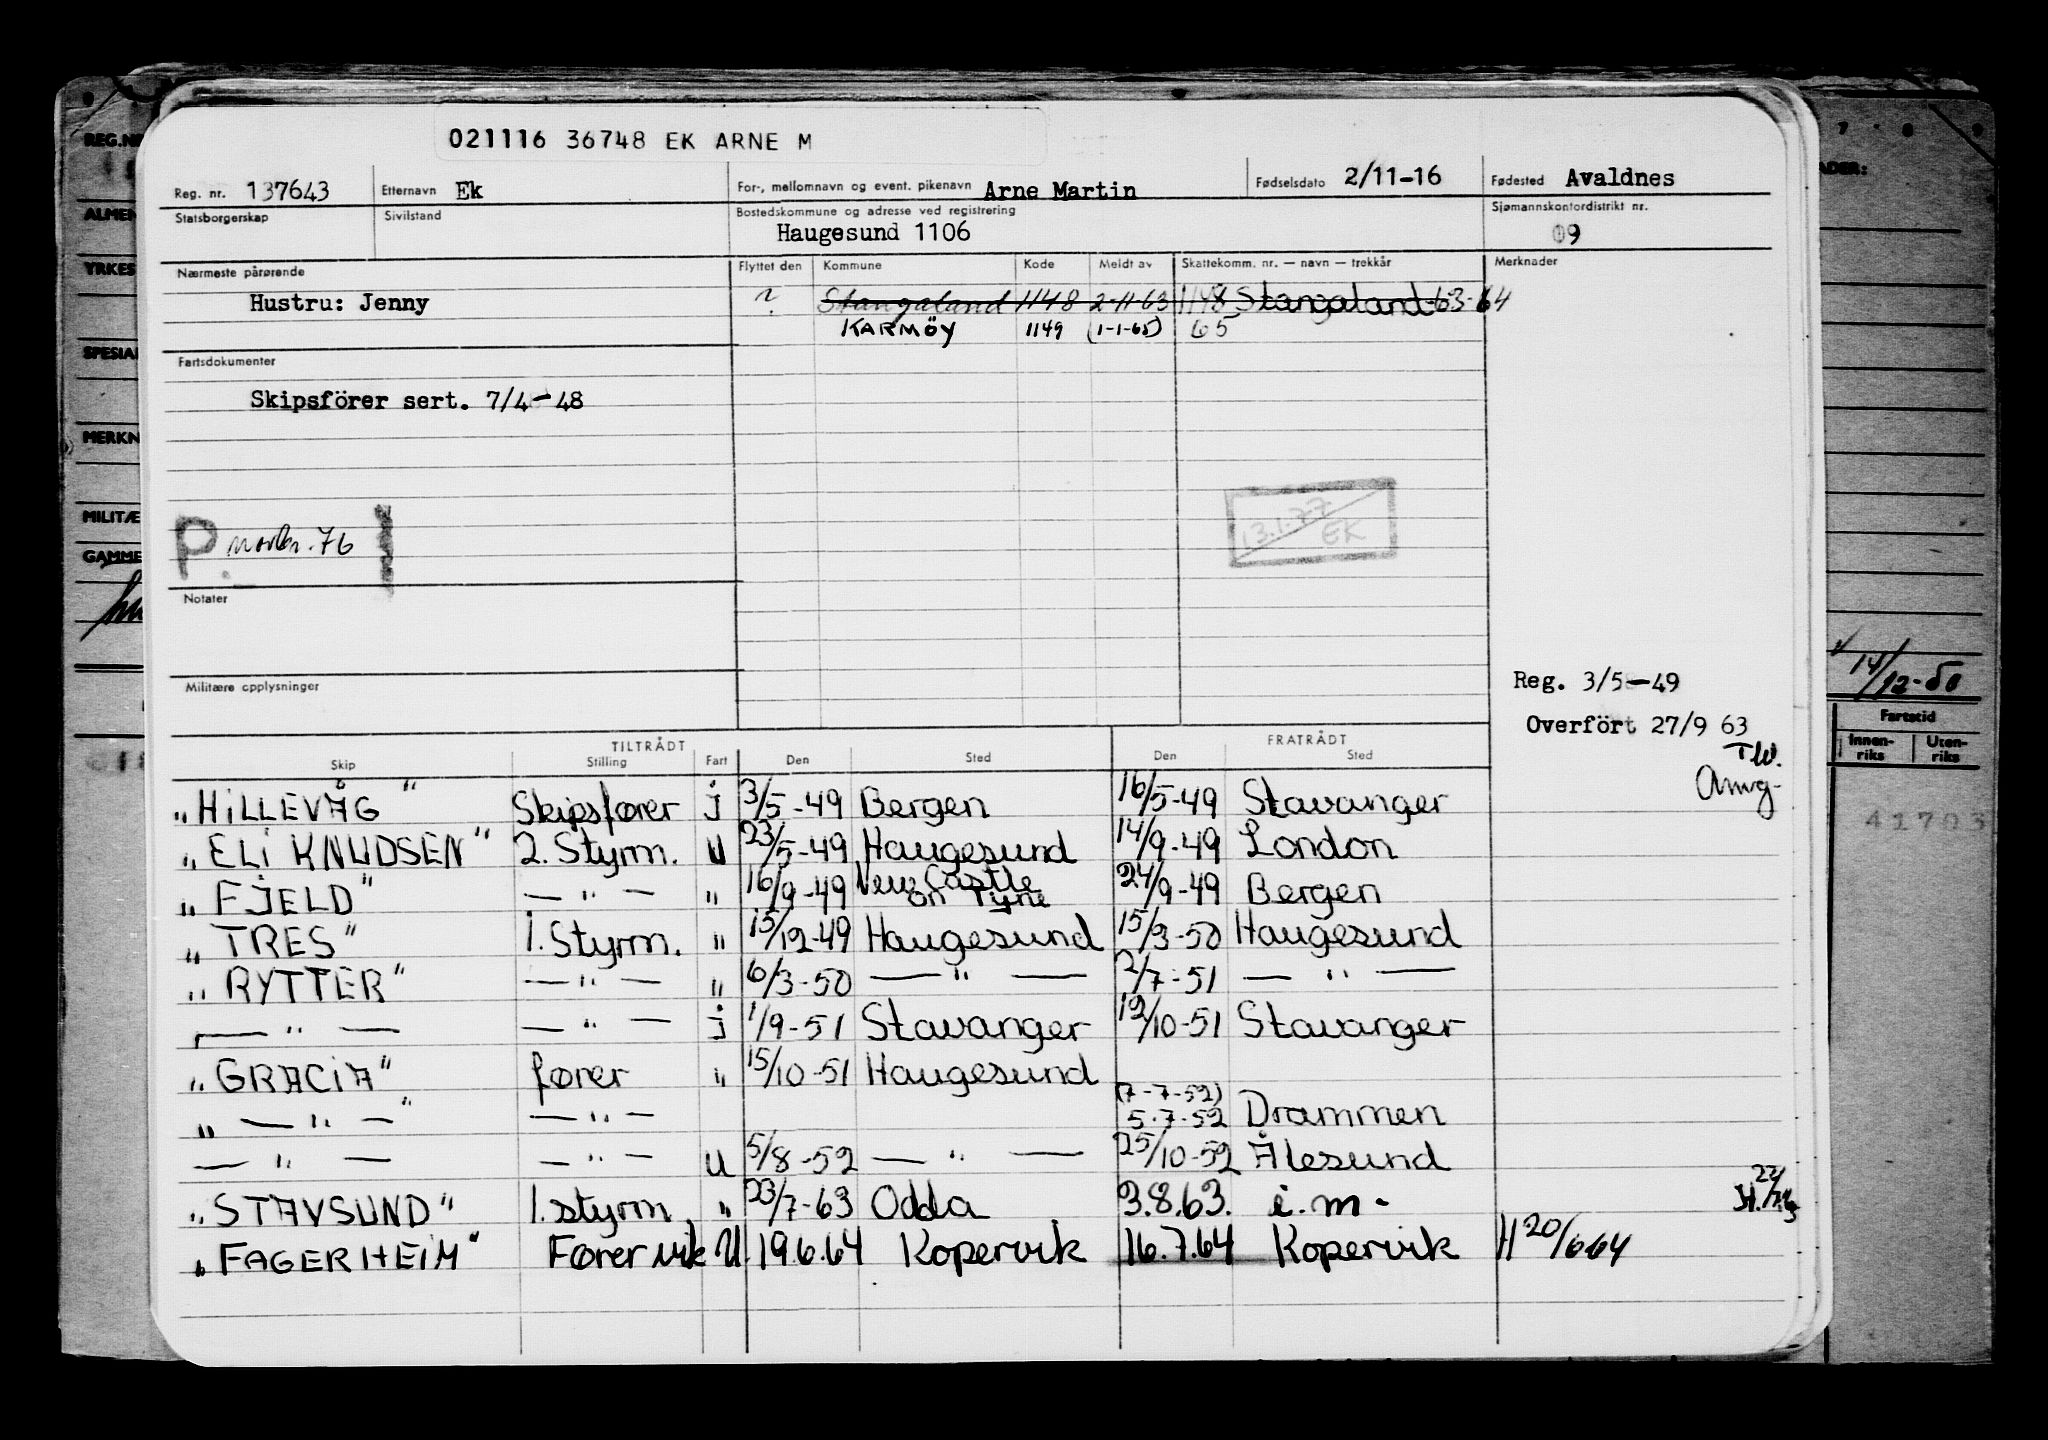 021116 36748 EK ARNE M
Reg. nr. 137643 Etternavn Ek For-, mellomnavn og event. pikenavn Arne Martin Fødselsdato 2/11-16 Fødested Avaldnes
Statsborgerskap Sivilstand Bostedskommune og adresse ved registrering Sjømannskontordistrikt nr.
Haugesund 1106 09
Nærmeste pårørende Flyttet den Kommune Kode Meldt av Skattekomm. nr. — navn — trekkår Merknader
Hustru: Jenny ? Stangaland 1148 2-11-63 1148 Stangaland 63-64
KARMÖY 1149 (1-1-65) 65
Fartsdokumenter
Skipsförer sert. 7/4-48
13.1.77
EK
P. 76
Notater
Militære opplysninger
Reg. 3/5-49
Overfört 27/9 63
TILTRÅDT FRATRÅDT
Skip Stilling Fart Den Sted Den Sted
"HILLEVÅG" Skipsfører J 3/5-49 Bergen 16/5-49 Stavanger
"ELI KNUDSEN" 2. Styrm. U 23/5-49 Haugesund 14/9-49 London
"FJELD" — " — " 16/9-49 New Castle on Tyne 24/9-49 Bergen
"TRES" 1. Styrm. " 15/12-49 Haugesund 15/3-50 Haugesund
"RYTTER" — " — " 6/3-50 — " — 2/7-51 — " —
— " — — " — J 1/9-51 Stavanger 12/10-51 Stavanger
"GRACIA" fører " 15/10-51 Haugesund
" — " — " — " — (7-7-52) 5.7-52 Drammen
— " — — " — U 5/8-52 — " — 25/10-52 Ålesund
"STAVSUND" 1. styrm. " 23/7-63 Odda 3.8.63. i.m.
"FAGERHEIM" Fører vik U. 19.6.64 Kopervik 16.7.64 Kopervik H 20/6 64
REG.NR
ALMEN
YRKES
SPESIAL
MERKN
MILITÆ
GAMME
7 8 9
ADER:
14/12-50
Fartstid
Innen-riks Uten-riks
41703